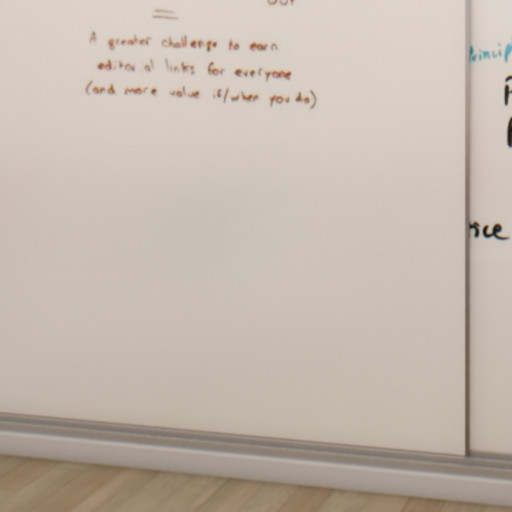 =
A greater challenge to earn
editorial links for everyone
(and more value if/when you do)